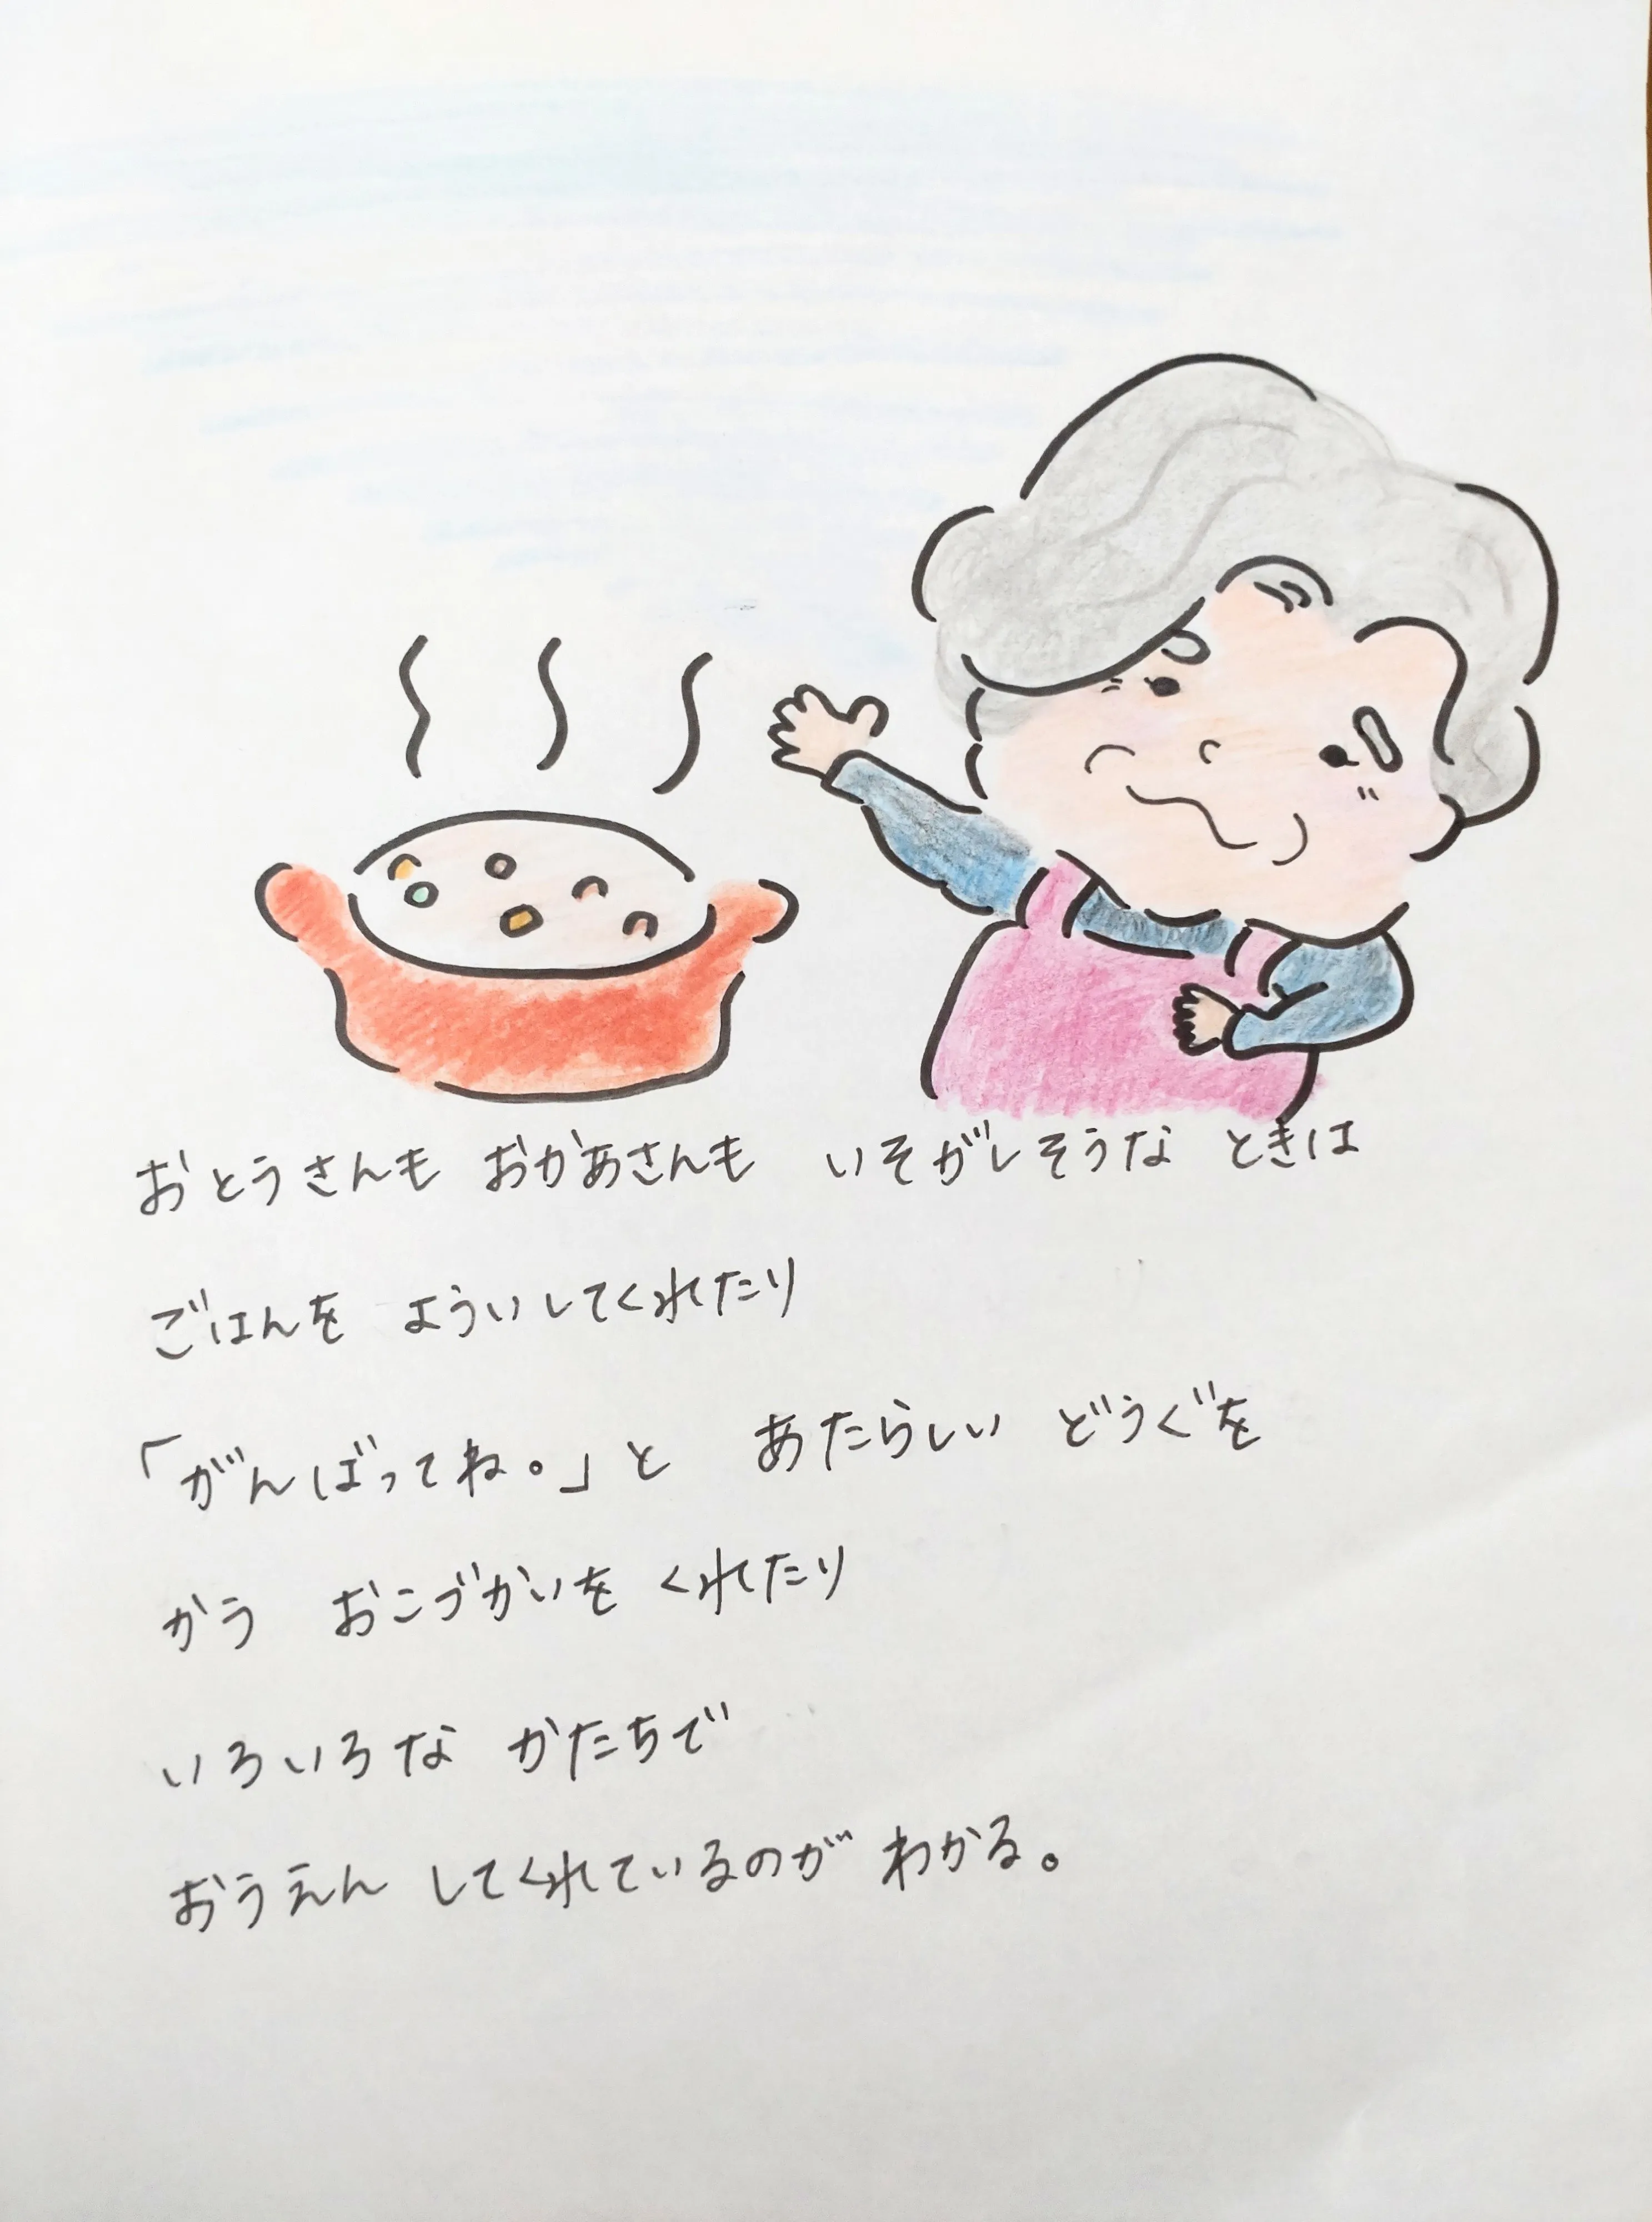 おとうさんも おかあさんも いそがしそうな ときは
ごはんを よういしてくれたり
「がんばってね。」と あたらしい どうぐを
かう おこづかいを くれたり
いろいろな かたちで
おうえん してくれているのが わかる。